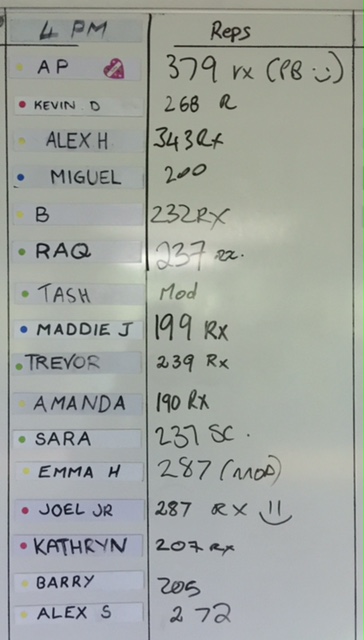 4 PM Reps
AP 379 rx (PB :)
KEVIN D 268 R
ALEX H 343 Rx
MIGUEL 200
B 232 RX
RAQ 237 rx.
TASH Mod
MADDIE J 199 Rx
TREVOR 239 Rx
AMANDA 190 RX
SARA 237 SC.
EMMA H 287 (MOD)
JOEL JR 287 RX :)
KATHRYN 207 RX
BARRY 205
ALEX S 272